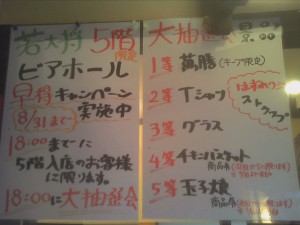 若大将 5階
限定
ビアホール
早得キャンペーン
8/31まで 実施中
18:00までに
5階入店のお客様
に限ります。
18:00に大抽選会
大抽選会 景品
1等 萬膳(キープ限定)
2等 Tシャツ
3等 グラス
4等 チキンバスケット
商品券
5等 玉子焼
商品券
はずれなし
ストラップ